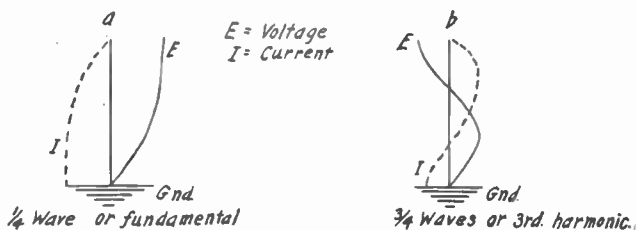 a
E = Voltage
I = Current
E
I
Gnd.
1/4 Wave or fundamental
b
E
I
Gnd.
3/4 Waves or 3rd. harmonic.